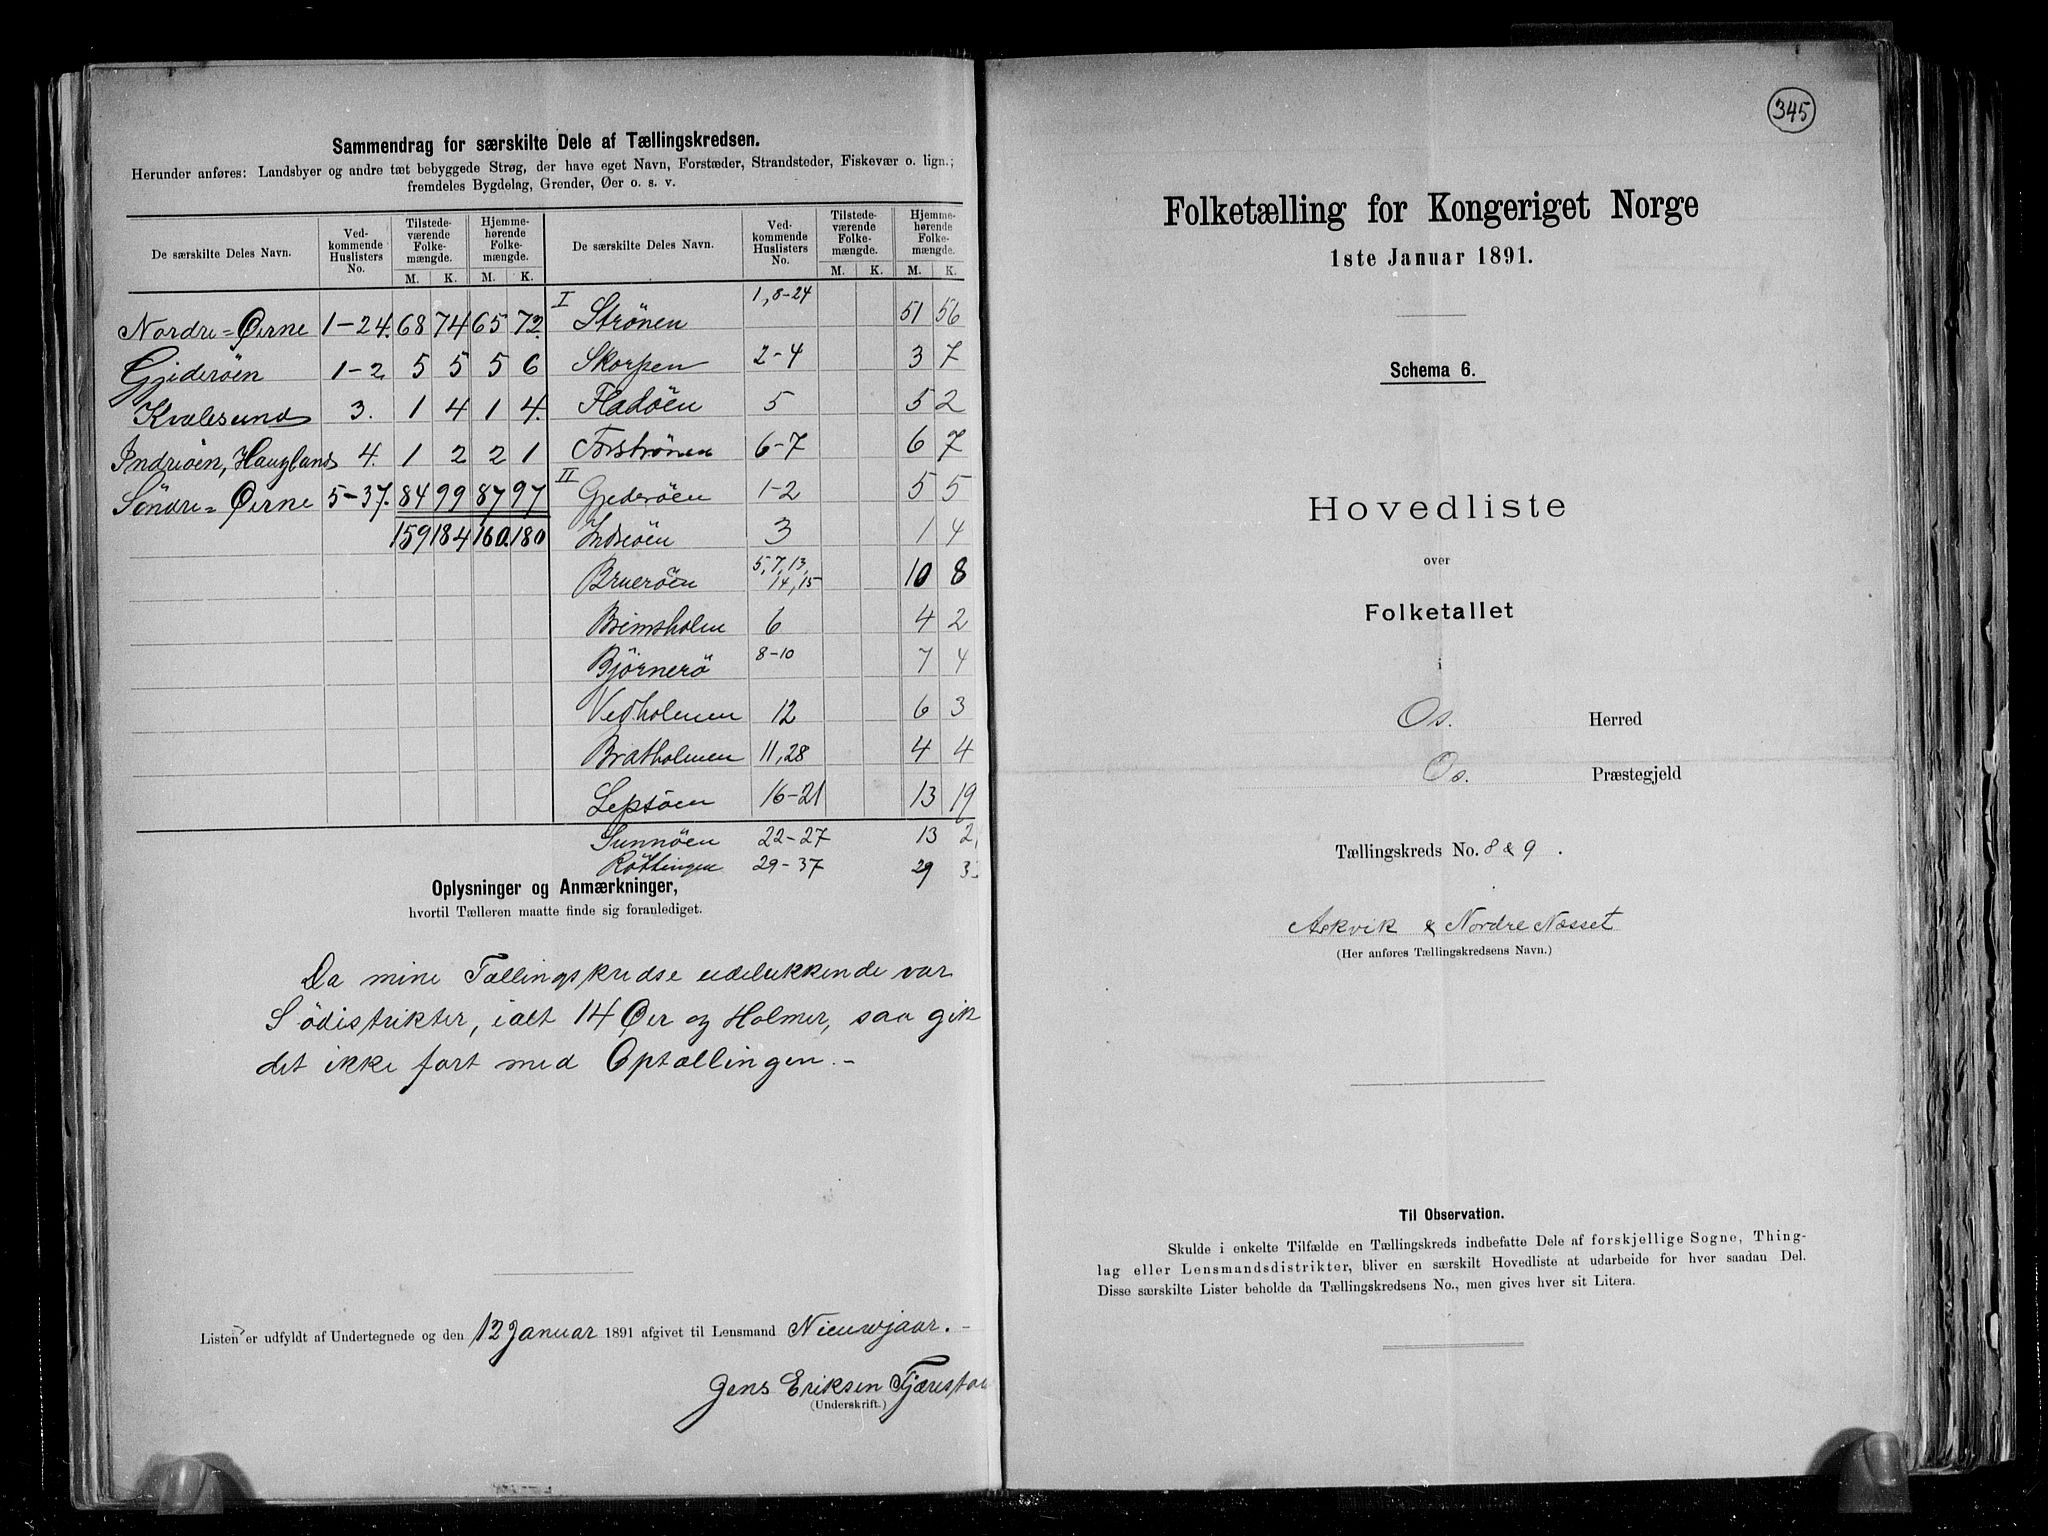 Sammendrag for særskilte Dele af Tællingskredsen.
Herunder anføres: Landsbyer og andre tæt bebyggede Strøg, der have eget Navn, Forstæder, Strandsteder, Fiskevær o. lign.;
fremdeles Bygdelag, Grender, Øer o. s. v.
De særskilte Deles Navn. Ved-kommende Huslisters No. Tilstede-værende Folke-mængde. Hjemme-hørende Folke-mængde.
M. K. M. K.
Nordre=Øerne 1-24. 68 74 65 72.
Gjederöen 1-2 5 5 5 6
Kvalesund 3. 1 4 1 4.
Indreöen, Haugland 4. 1 2 2 1
Söndre=Øerne 5-37. 84 99 87 97
159 184 160. 180
De særskilte Deles Navn. Ved-kommende Huslisters No. Tilstede-værende Folke-mængde. Hjemme-hørende Folke-mængde.
M. K. M. K.
I Strönen 1, 8-24 51 56
Skorpen 2-4 3 7
Fladöen 5 5 2
Forströnen 6-7 6 7
II Gjederöen 1-2 5 5
Indreöen 3 1 4
Brueröen 5, 7, 13, 14, 15 10 8
Brimsholm 6 4 2
Björnerö 8-10 7 4
Vedholmen 12 6 3
Bratholmen 11, 28 4 4
Lepsöen 16-21 13 19
Sunnöen 22-27 13
Röttingen 29-37 29
Oplysninger og Anmærkninger,
hvortil Tælleren maatte finde sig foranlediget.
Da mine Tællingskredse udelukkende var
Södistrikter, ialt 14 Øer og Holmer, saa gik
det ikke fort med Optællingen. -
Listen er udfyldt af Undertegnede og den 12 Januar 1891 afgivet til Lensmand Nieuwjaar. -
Jens Eriksen
(Underskrift.)
345
Folketælling for Kongeriget Norge
1ste Januar 1891.
Schema 6.
Hovedliste
over
Folketallet
i
Os. Herred
Os. Præstegjeld
Tællingskreds No. 8 & 9.
Askvik & Nordre Næsset
(Her anføres Tællingskredsens Navn.)
Til Observation.
Skulde i enkelte Tilfælde en Tællingskreds indbefatte Dele af forskjellige Sogne, Thing-
lag eller Lensmandsdistrikter, bliver en særskilt Hovedliste at udarbeide for hver saadan Del.
Disse særskilte Lister beholde da Tællingskredsens No., men gives hver sit Litera.